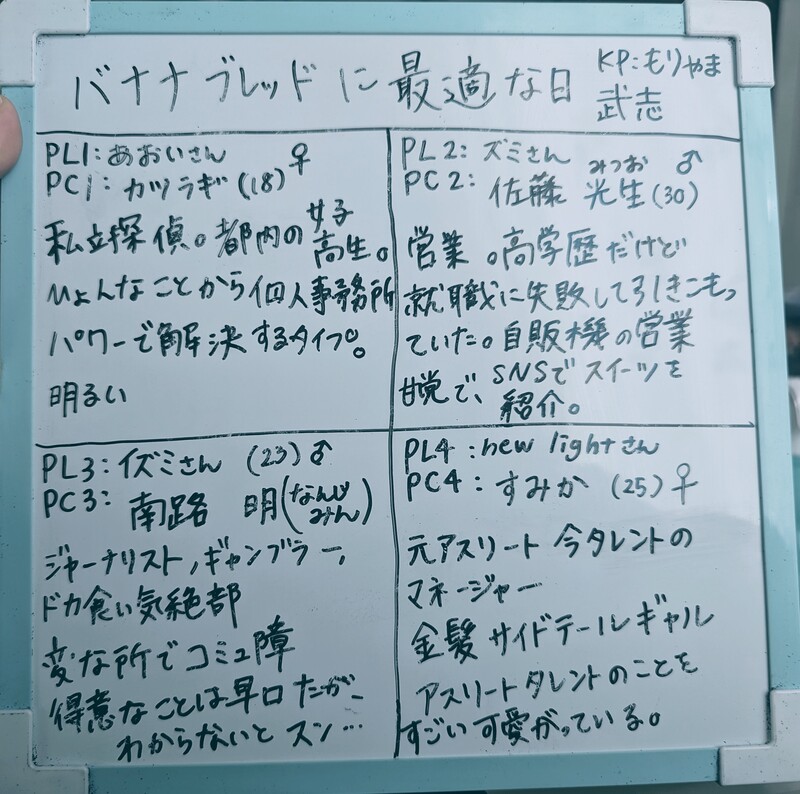 バナナブレッドに最適な日
KP:もりやま
武志
PL1:あおいさん ♀
PC1:カツラギ(18)
私立探偵。都内の女子高生。
ひょんなことから個人事務所
パワーで解決するタイプ。
明るい
PL2:ズミさん ♂
みつお
PC2:佐藤 光生(30)
営業。高学歴だけど
就職に失敗して引きこもっ
ていた。自販機の営業
甘党で、SNSでスイーツを
紹介。
PL3:イズミさん (23)♂
PC3:南路 明(なんじ
みん)
ジャーナリスト,ギャンブラー,
ドカ食い気絶部
変な所でコミュ障
得意なことは早口だが、
わからないと スン…
PL4:new lightさん
PC4:すみか (25)♀
元アスリート 今タレントの
マネージャー
金髪 サイドテールギャル
アスリートタレントのことを
すごい可愛がっている。